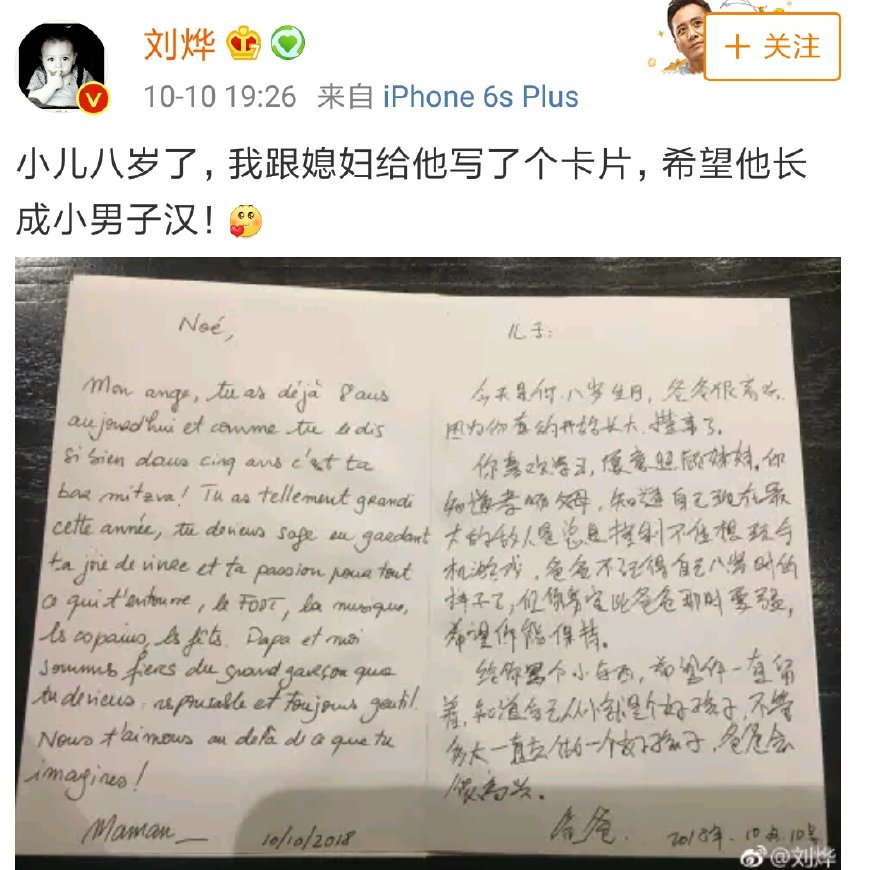 刘烨
+ 关注
10-10 19:26 来自 iPhone 6s Plus
小儿八岁了，我跟媳妇给他写了个卡片，希望他长
成小男子汉！
Noé,
Mon ange, tu as déjà 8 ans
aujourd'hui et comme tu le dis
si bien dans cinq ans c'est ta
bar mitzva! Tu as tellement grandi
cette année, tu deviens sage en gardant
ta joie de vivre et ta passion pour tout
ce qui t'entoure, le FOOT, la musique,
les copains, les fêts. Papa et moi
sommes fiers du grand garçon que
tu deviens, responsable et toujours gentil.
Nous t'aimons au delà de ce que tu
imagines!
Maman
10/10/2018
儿子:
今天是你八岁生日，爸爸很高兴，
因为你真的开始长大，懂事了。
你喜欢学习，愿意照顾妹妹。你
知道孝顺父母，知道自己现在最
大的敌人是总是控制不住想玩手
机游戏，爸爸不记得自己八岁时的
样子了，但你肯定比爸爸那时要强，
希望你能保持。
给你写个小东西，希望你一直留
着，知道自己从小就是个好孩子，不管
多大一直去做一个好孩子，爸爸会
很高兴。
爸爸.
2018年.10月.10号
@刘烨